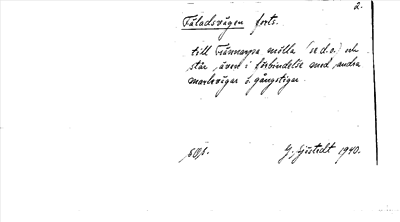 2.
Fäladsvägen forts.
till Trännarps mölla (se d.o.) och
står även i förbindelse med andra
markvägar o. gångstigar.
G. Sjöstedt 1940.